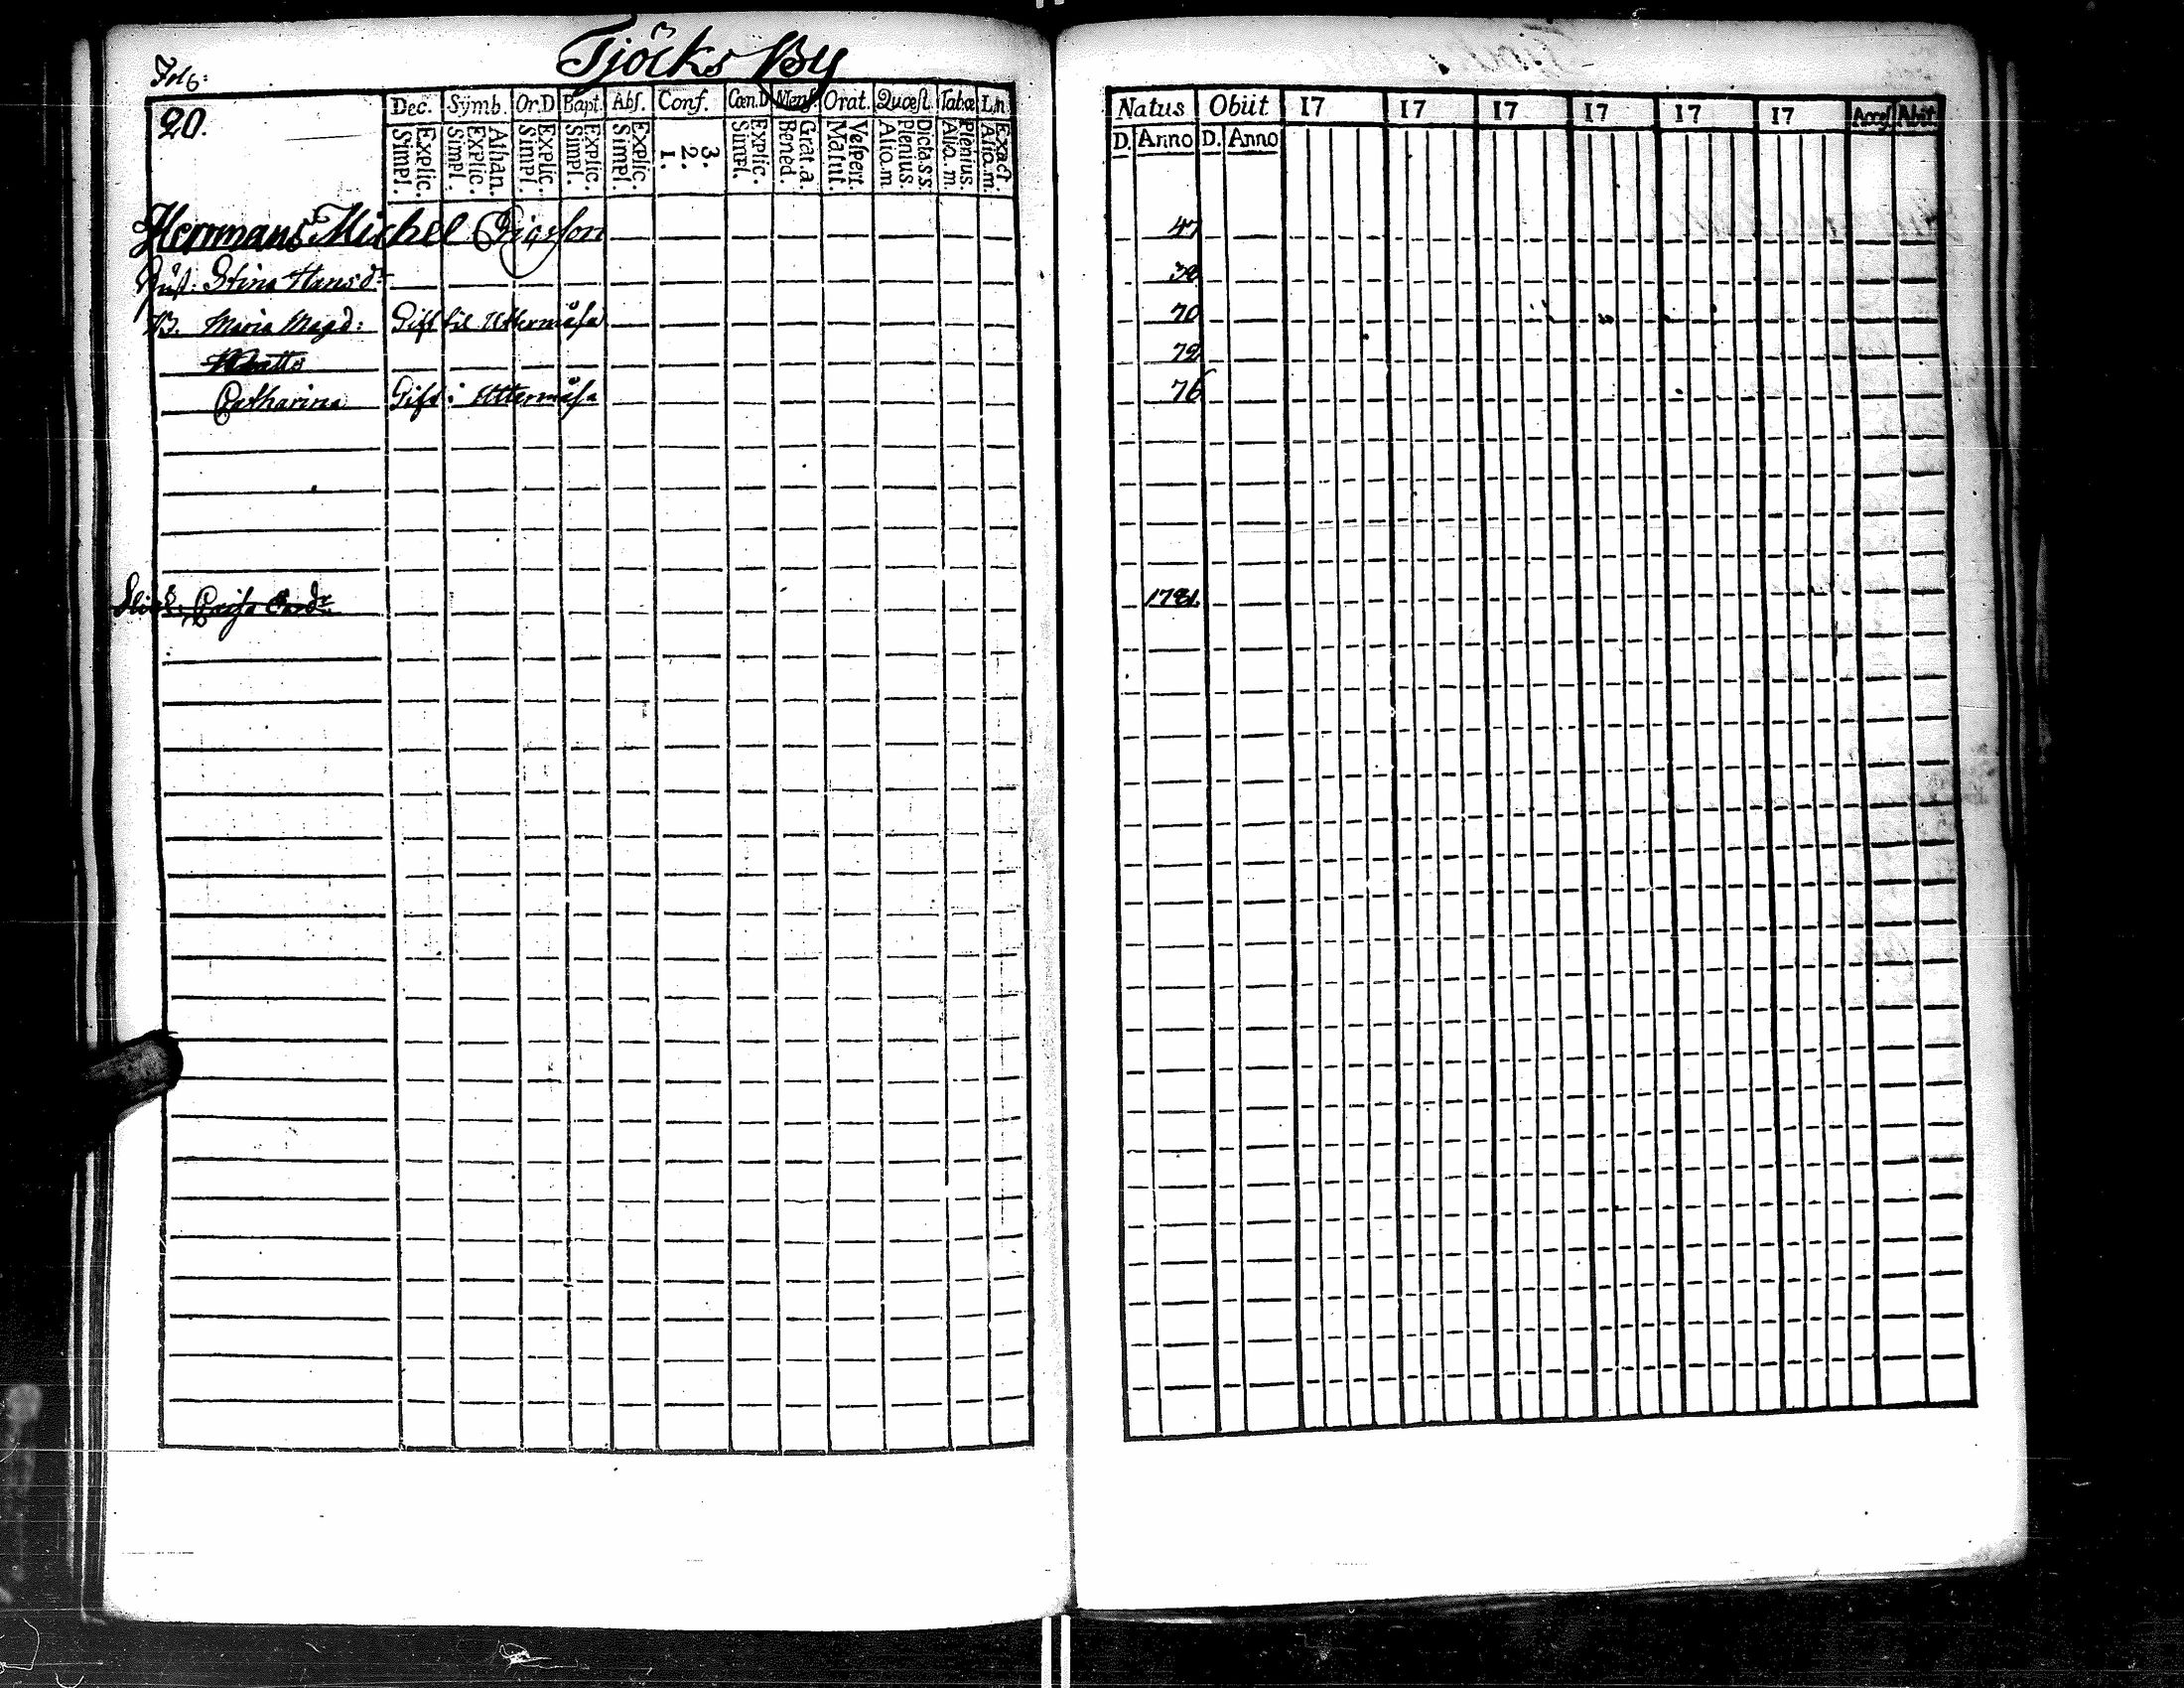 Tjöcks By
Fol 6:
20.
Dec. Symb. Or.D Bapt. Abs. Conf. Cœn.D Mens. Orat. Quæst. Tabæ L.n
Simpl. Explic. Simpl. Explic. Athan. Simpl. Explic. Simpl. Explic. Simpl. Explic. 1. 2. 3. Simpl. Explic. Bened. Grat. a. Matut. Vespert. Alio. m. Plenius. Dicta. s. s. Alio. m. Plenius. Alio. m. Exact.
Natus Obiit 17 17 17 17 17 17 Access Abiit
D. Anno D. Anno
Herrmans Michel 47
Hust: Stina Hansdr 38
B. Maria Magd: Gift til Uttermåsa 70
Matts 72
Catharina Gift i Uttermåsa 76
Caisa 1781.